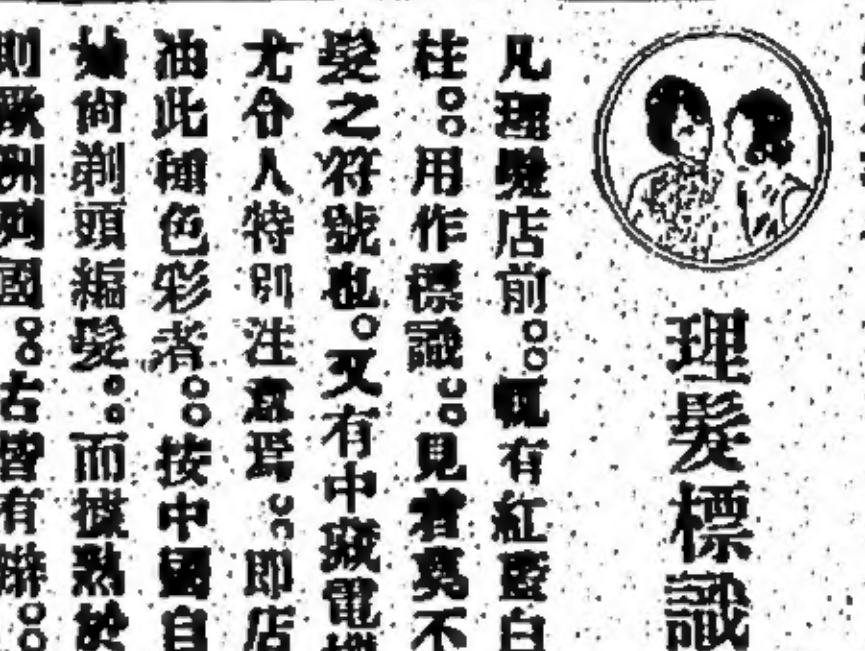 理髮標識
凡理髮店前。。輒有紅藍白
柱。。用作標識。。見者莫不
髮之符號也。又有中藏電機
尤令人特別注意焉。。即店
油此種色彩者。。按中國自
始尙剃頭編髮。。而據熟於
則歐洲列國。。古皆有辮。。